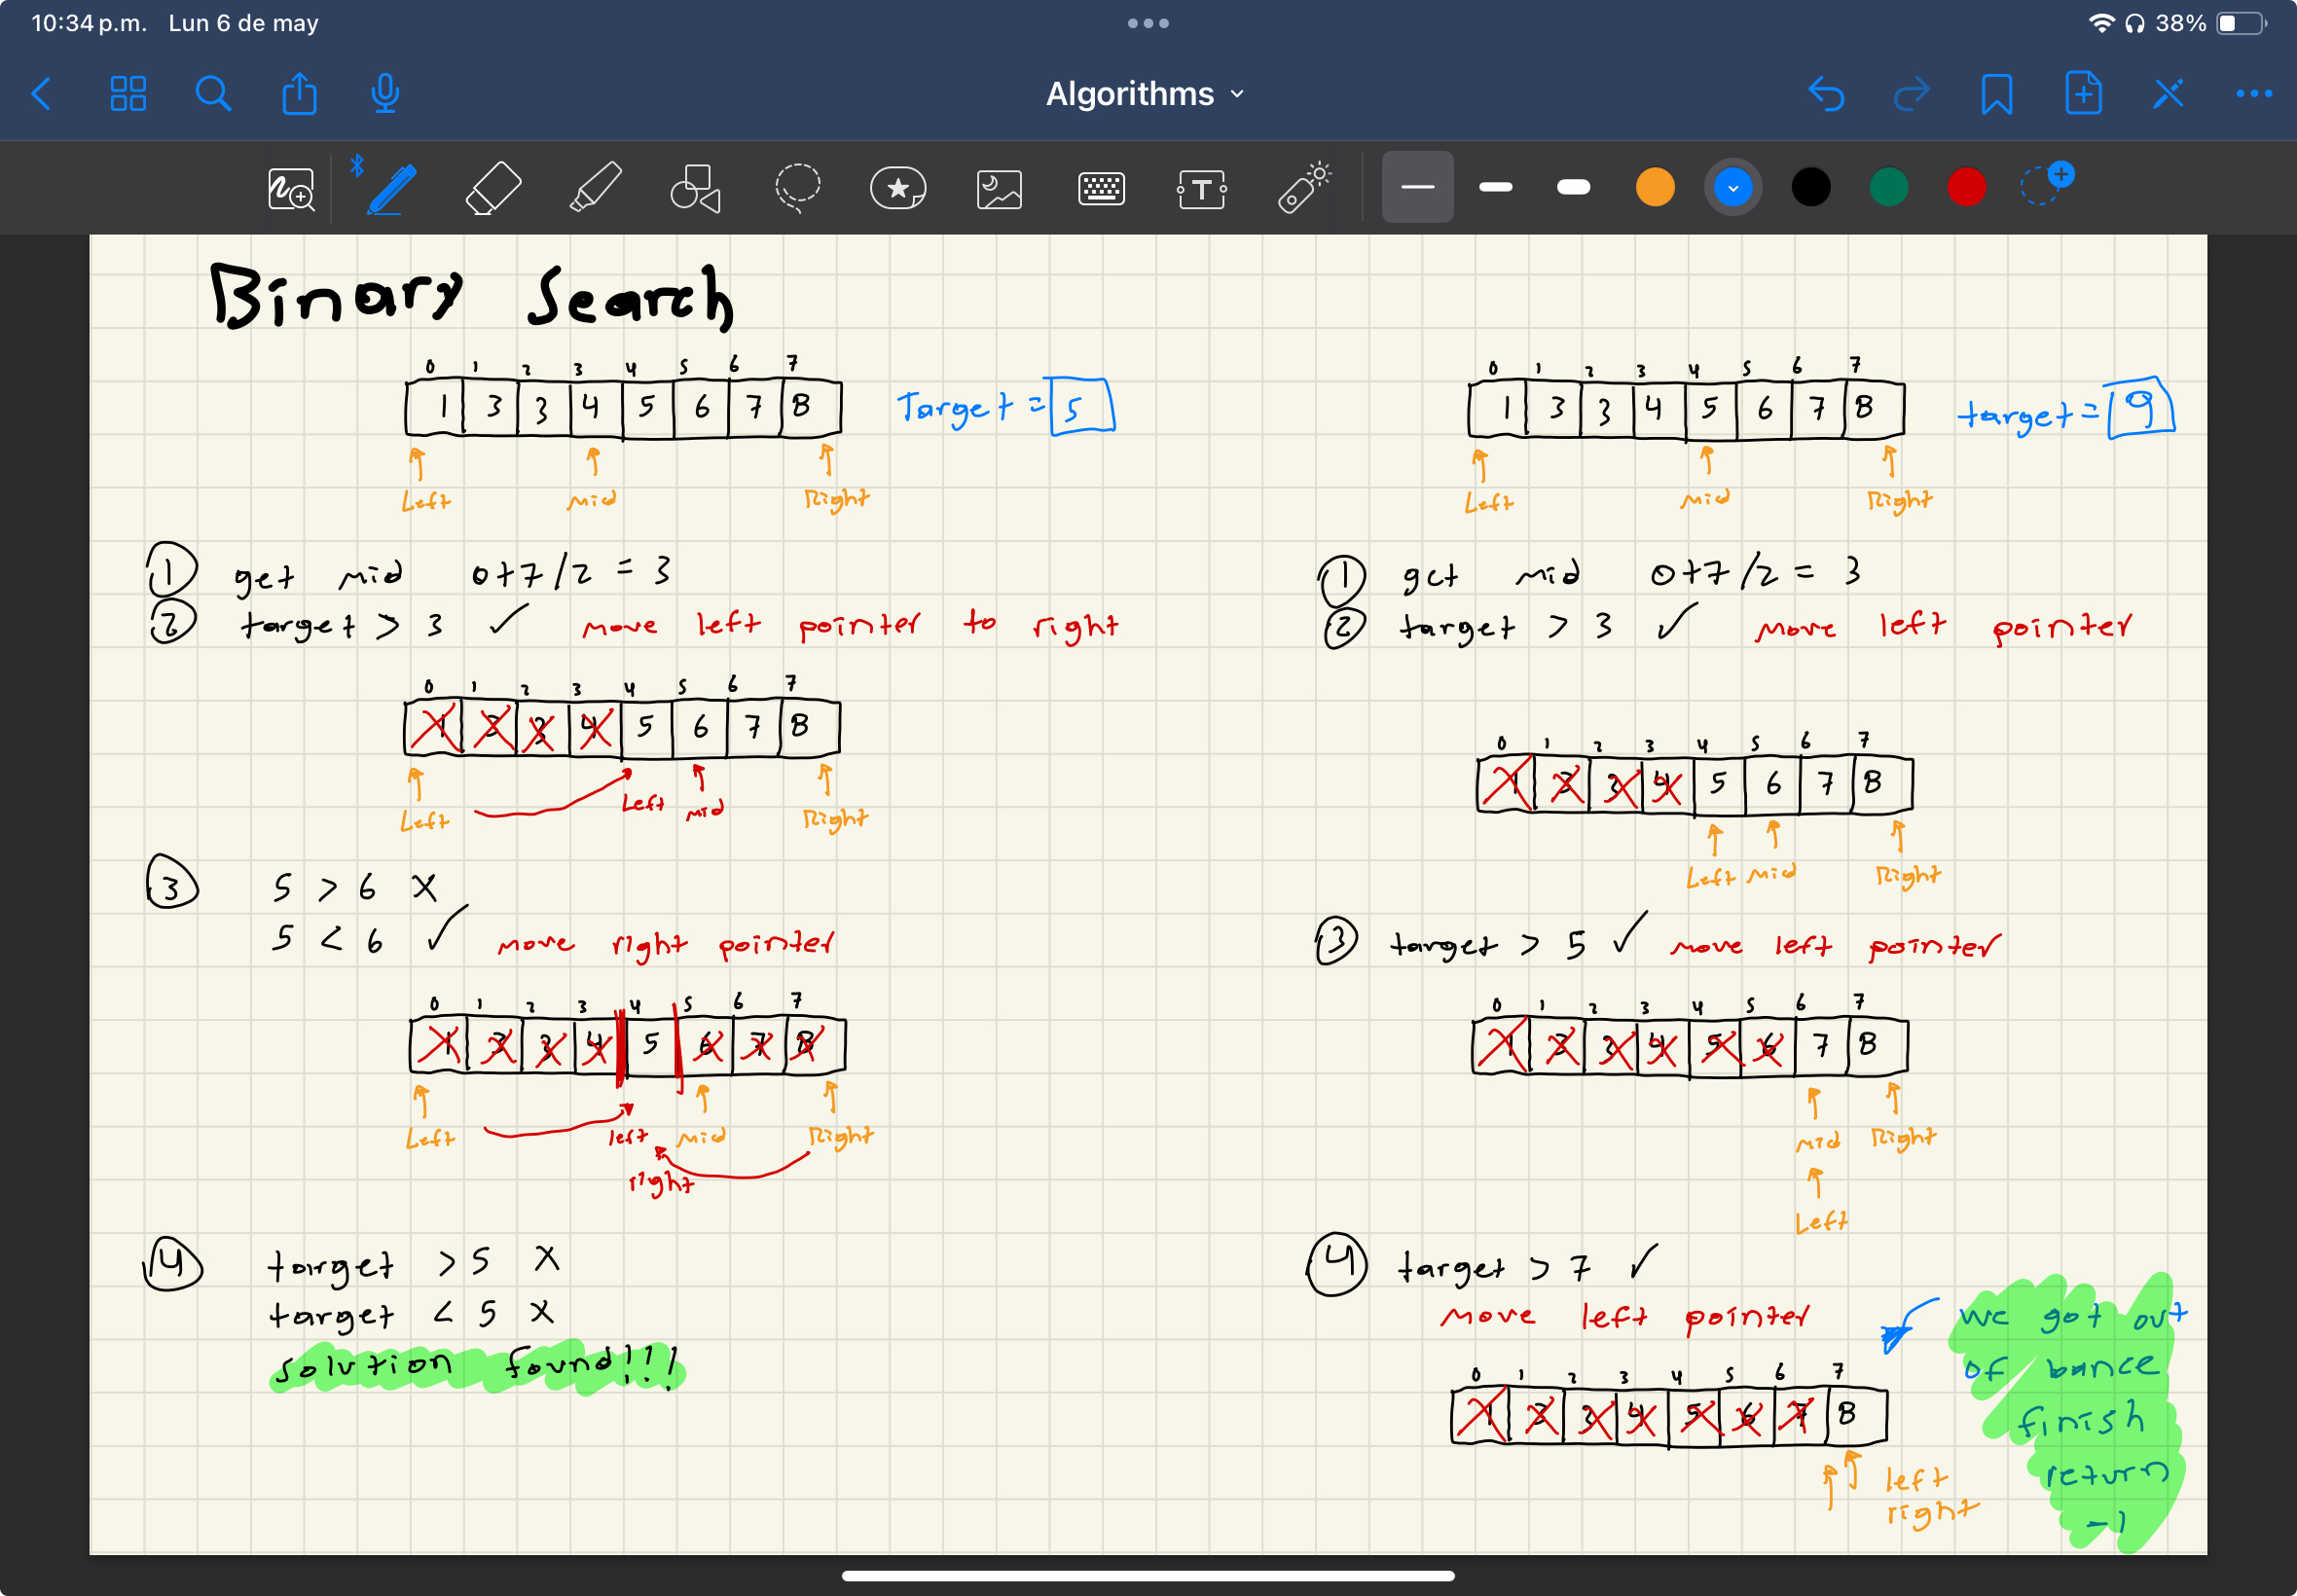 10:34 p.m. Lun 6 de may
38%
Algorithms
Binary Search
0 1 2 3 4 5 6 7
1 3 3 4 5 6 7 8
Target = 5
Left Mid Right
① get mid 0+7/2 = 3
② target > 3 ✓ move left pointer to right
0 1 2 3 4 5 6 7
1 3 3 4 5 6 7 8
Left Left mid Right
③ 5 > 6 X
5 < 6 ✓ move right pointer
0 1 2 3 4 5 6 7
1 3 3 4 5 6 7 8
Left left Mid Right
right
④ target > 5 X
target < 5 X
solution found!!!
0 1 2 3 4 5 6 7
1 3 3 4 5 6 7 8
target = 9
Left Mid Right
① get mid 0+7/2 = 3
② target > 3 ✓ move left pointer
0 1 2 3 4 5 6 7
1 3 3 4 5 6 7 8
Left Mid Right
③ target > 5 ✓ move left pointer
0 1 2 3 4 5 6 7
1 3 3 4 5 6 7 8
Mid Right
Left
④ target > 7 ✓
move left pointer
we got out
of bance
finish
return
-1
0 1 2 3 4 5 6 7
1 3 3 4 5 6 7 8
left
right